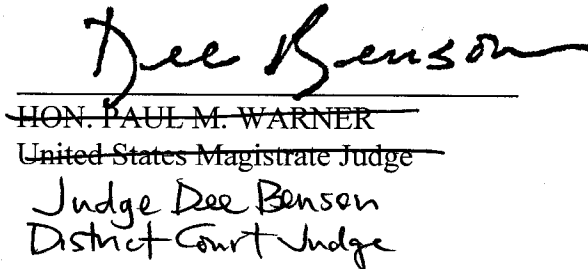 Dee Benson
HON. PAUL M. WARNER
United States Magistrate Judge
Judge Dee Benson
District Court Judge